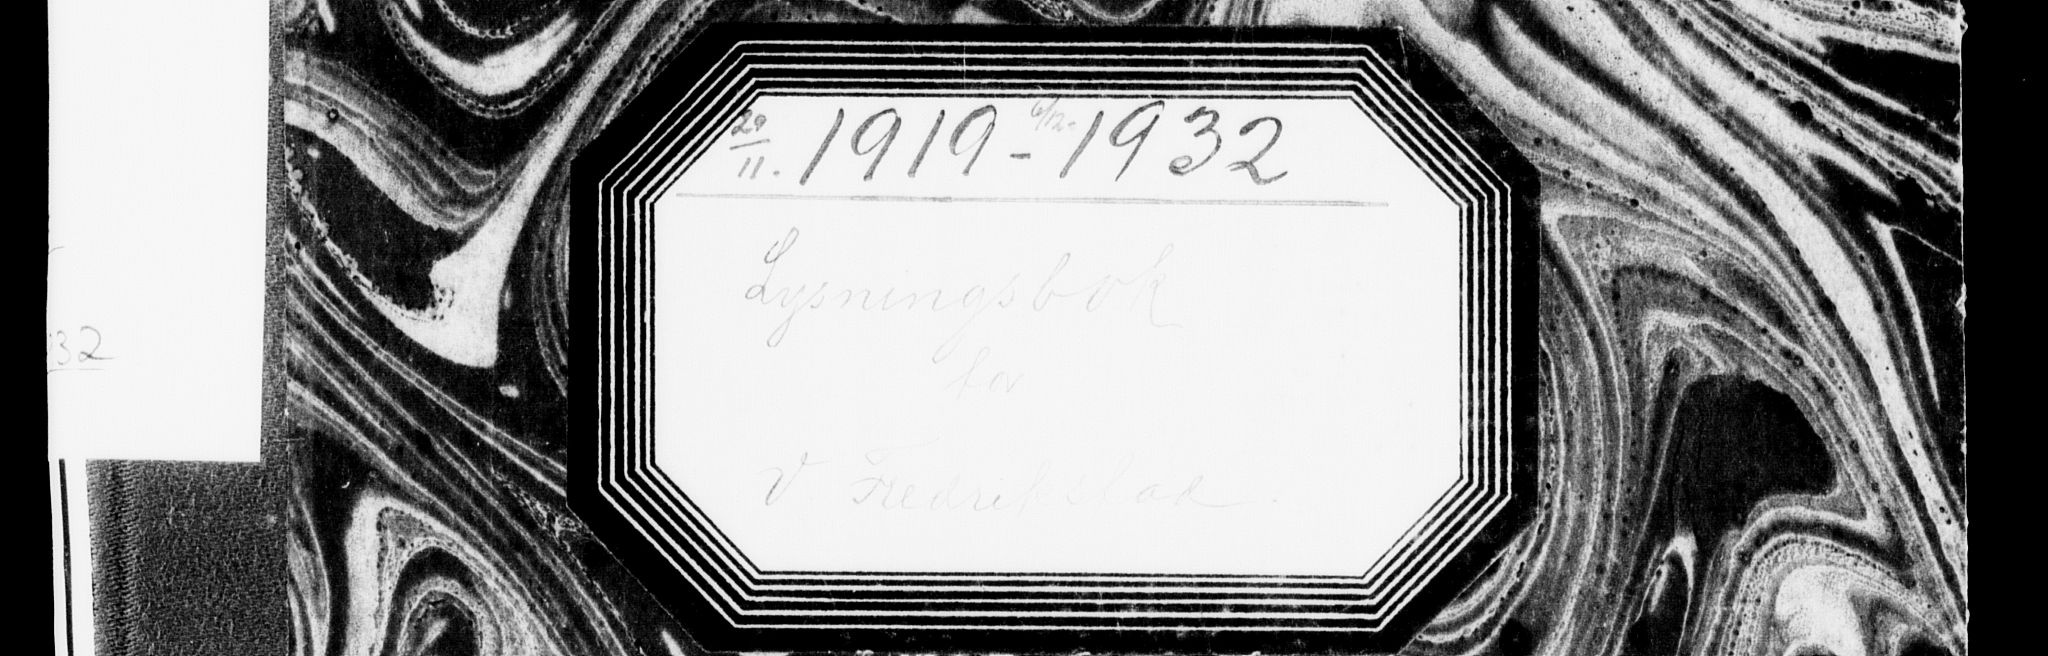 29/11. 1919 - 6/12. 1932
Lysningsbok
for
V. Fredrikstad.
32